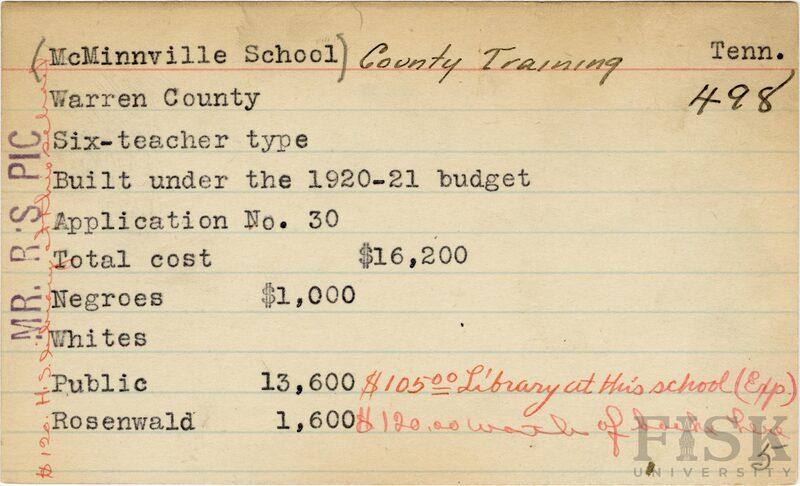 (McMinnville School) County Training Tenn.
Warren County 498
Six-teacher type
Built under the 1920-21 budget
Application No. 30
Total cost $16,200
Negroes $1,000
Whites
Public 13,600 $105.00 Library at this school (Exp)
Rosenwald 1,600 $120.00 worth of books here
5
MR. R'S PIC
$120. H.S. Library at this school
FISK
UNIVERSITY